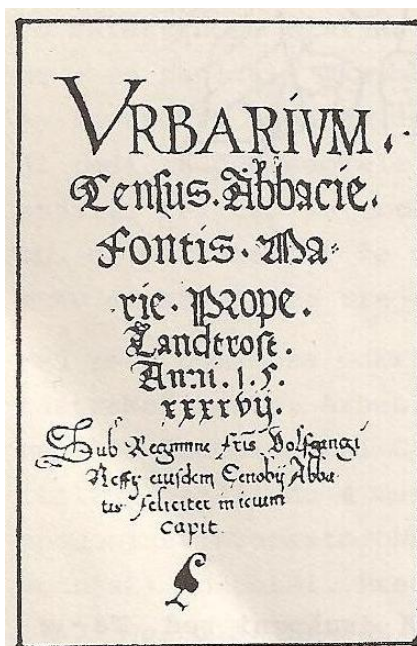 VRBARIVM.
Census. Abbacie.
Fontis. Ma=
rie. Prope.
Landtrost.
Anni. 1.5.
xxxxvij.
Sub Regimine fris Volfgangi
Neffy eiusdem Cenobij Abba
tis feliciter in
capit